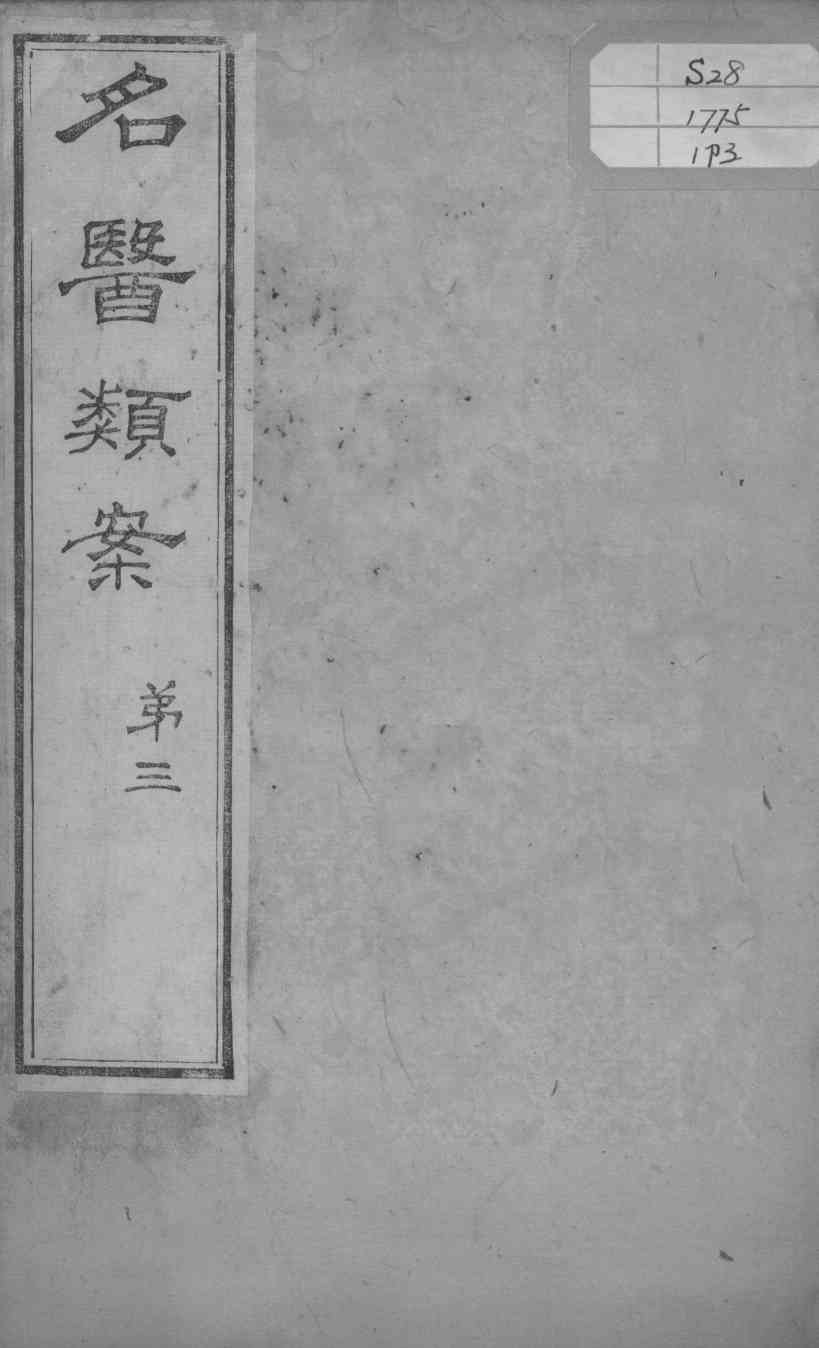 名醫類案
弟三
S28
1775
1P3